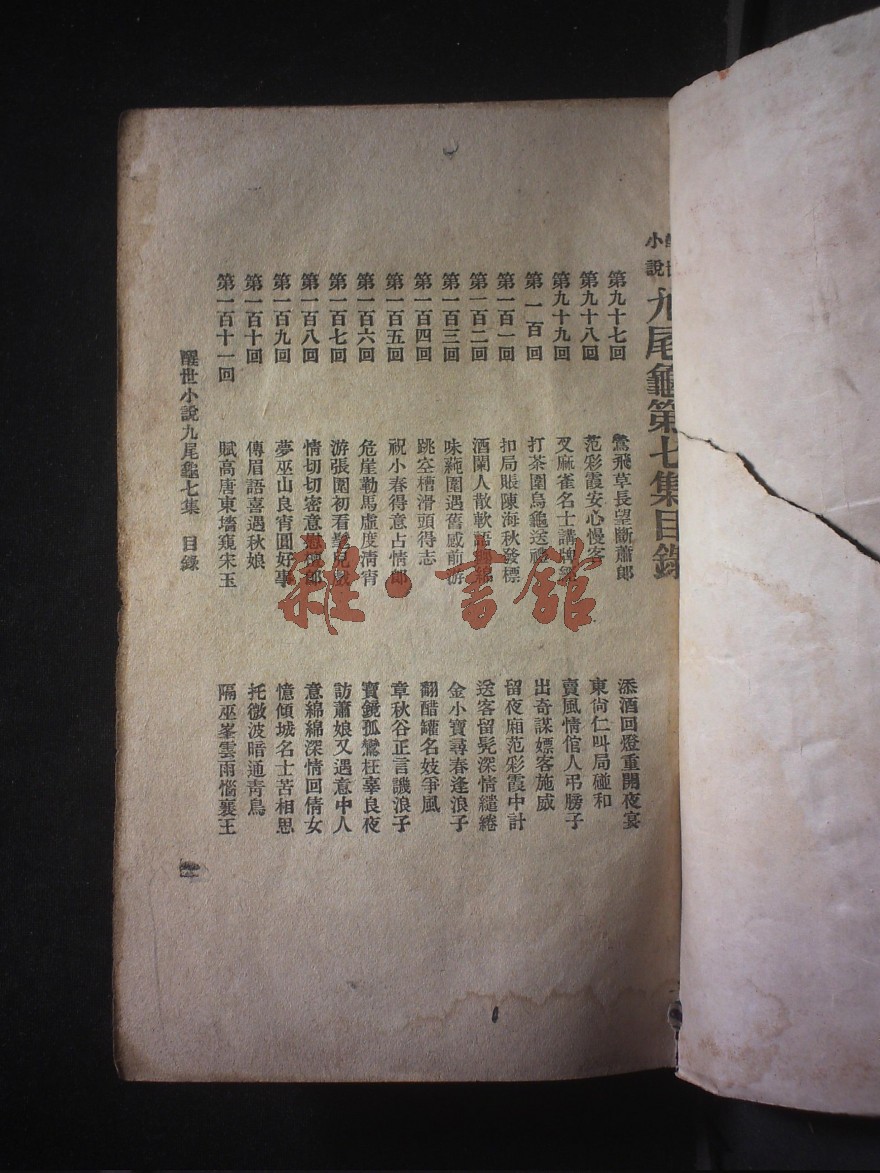 小說 九尾龜第七集目錄
第九十七回 鶯飛草長望斷蕭郎 添酒回燈重開夜宴
第九十八回 范彩霞安心慢客 東尙仁叫局碰和
第九十九回 叉麻雀名士講牌經 賣風情倌人弔膀子
第一百回 打茶圍烏龜送禮 出奇謀嫖客施威
第一百一回 扣局賬陳海秋發標 留夜廂范彩霞中計
第一百二回 酒闌人散軟語纏綿 送客留髡深情繾綣
第一百三回 味蒓園遇舊感前游 金小寶尋春逢浪子
第一百四回 跳空槽滑頭得志 翻醋罐名妓爭風
第一百五回 祝小春得意占情郎 章秋谷正言譏浪子
第一百六回 危崖勒馬虛度淸宵 寶鏡孤鸞枉辜良夜
第一百七回 游張園初看髦兒戲 訪蕭娘又遇意中人
第一百八回 情切切密意慰檀郎 意綿綿深情回倩女
第一百九回 夢巫山良宵圓好事 憶傾城名士苦相思
第一百十回 傳眉語喜遇秋娘 托微波暗通靑鳥
第一百十一回 賦高唐東墻窺宋玉 隔巫峯雲雨惱襄王
醒世小說九尾龜七集 目錄
雜·書館